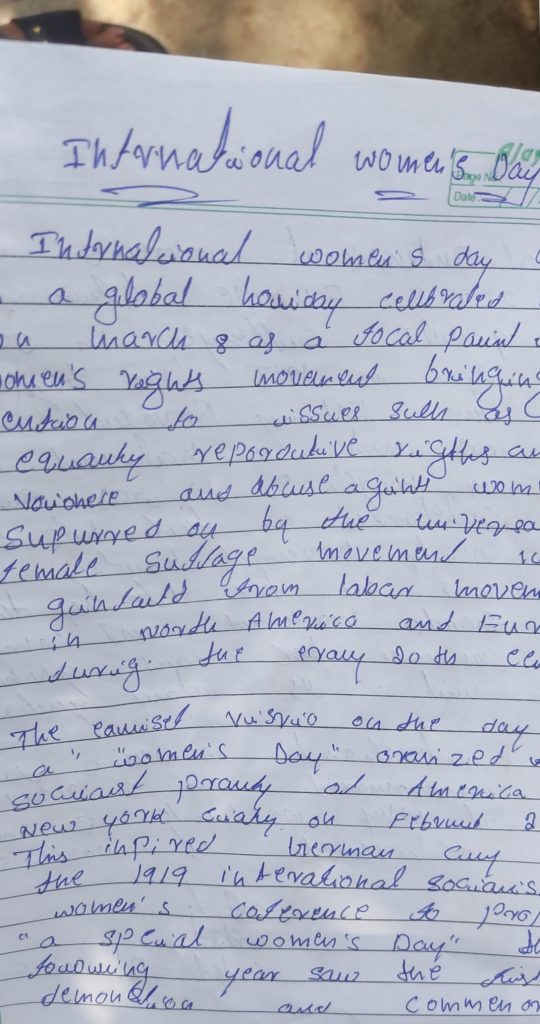 International women's Day
Page No.
Date:
International women's day
a global holiday celebrated
on march 8 as a focal point
women's rights movement bringing
to issues such as
equality reporoutive rights
and abuse againts wom
Supurred on by the universa
female Suffage movement
from labar movem
in north America and Eur
during. the eraly 20th cen
The eariset on the day
a "women's Day" oranized
socialist praty of America
New york on Februat 2
This inpired German
the 1919 interational socialis
women's coference to pro
"a special women's Day" th
following year saw the fis
and commemor